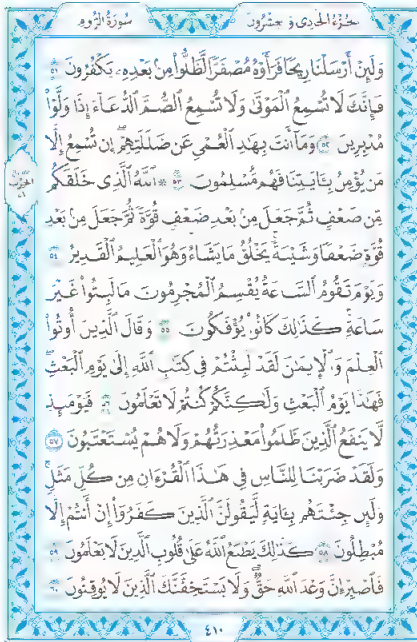 سُورَةُ الرُّومِ
الجُزْءُ الحَادِي وَعِشْرُونَ
وَلَئِنْ أَرْسَلْنَا رِيحًا فَرَأَوْهُ مُصْفَرًّا لَّظَلُّوا مِنْ بَعْدِهِ يَكْفُرُونَ ٥١
فَإِنَّكَ لَا تُسْمِعُ الْمَوْتَىٰ وَلَا تُسْمِعُ الصُّمَّ الدُّعَاءَ إِذَا وَلَّوْا
مُدْبِرِينَ ٥٢ وَمَا أَنتَ بِهَٰدِ الْعُمْيِ عَن ضَلَٰلَتِهِمْ إِن تُسْمِعُ إِلَّا
مَن يُؤْمِنُ بِـَٔايَٰتِنَا فَهُم مُّسْلِمُونَ ٥٣ ۞ اللَّهُ الَّذِي خَلَقَكُم
مِّن ضَعْفٍ ثُمَّ جَعَلَ مِنۢ بَعْدِ ضَعْفٍ قُوَّةً ثُمَّ جَعَلَ مِنۢ بَعْدِ
قُوَّةٍ ضَعْفًا وَشَيْبَةً يَخْلُقُ مَا يَشَاءُ وَهُوَ الْعَلِيمُ الْقَدِيرُ ٥٤
وَيَوْمَ تَقُومُ السَّاعَةُ يُقْسِمُ الْمُجْرِمُونَ مَا لَبِثُوا غَيْرَ
سَاعَةٍ كَذَٰلِكَ كَانُوا يُؤْفَكُونَ ٥٥ وَقَالَ الَّذِينَ أُوتُوا
الْعِلْمَ وَالْإِيمَٰنَ لَقَدْ لَبِثْتُمْ فِي كِتَٰبِ اللَّهِ إِلَىٰ يَوْمِ الْبَعْثِ
فَهَٰذَا يَوْمُ الْبَعْثِ وَلَٰكِنَّكُمْ كُنتُمْ لَا تَعْلَمُونَ ٥٦ فَيَوْمَئِذٍ
لَّا يَنفَعُ الَّذِينَ ظَلَمُوا مَعْذِرَتُهُمْ وَلَا هُمْ يُسْتَعْتَبُونَ ٥٧
وَلَقَدْ ضَرَبْنَا لِلنَّاسِ فِي هَٰذَا الْقُرْءَانِ مِن كُلِّ مَثَلٍ
وَلَئِن جِئْتَهُم بِـَٔايَةٍ لَّيَقُولَنَّ الَّذِينَ كَفَرُوا إِنْ أَنتُمْ إِلَّا
مُبْطِلُونَ ٥٨ كَذَٰلِكَ يَطْبَعُ اللَّهُ عَلَىٰ قُلُوبِ الَّذِينَ لَا يَعْلَمُونَ ٥٩
فَاصْبِرْ إِنَّ وَعْدَ اللَّهِ حَقٌّ وَلَا يَسْتَخِفَّنَّكَ الَّذِينَ لَا يُوقِنُونَ ٦٠
٤١٠